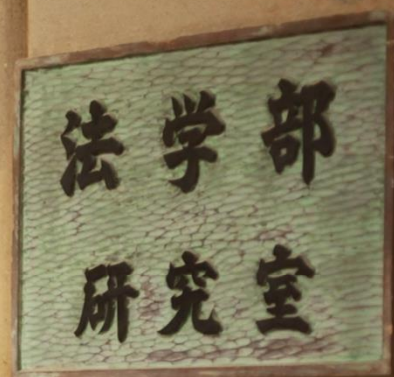 法学部
研究室